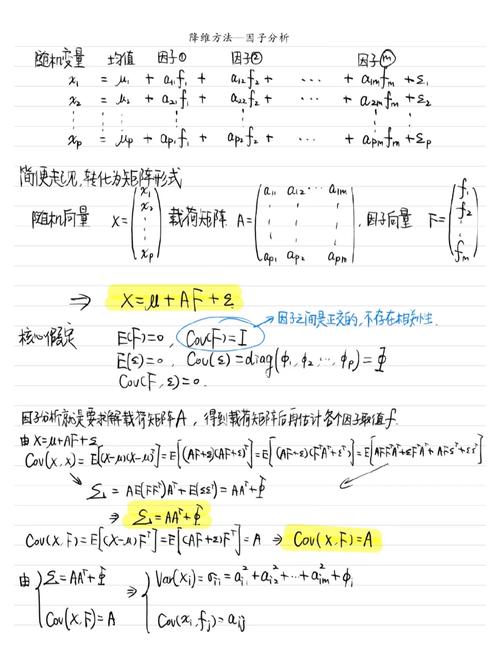 降维方法—因子分析
随机变量 均值 因子① 因子② 因子ⓜ
x₁ = μ₁ + a₁₁f₁ + a₁₂f₂ + ⋯ + a₁ₘfₘ + ε₁
x₂ = μ₂ + a₂₁f₁ + a₂₂f₂ + ⋯ + a₂ₘfₘ + ε₂
⋮ ⋮ ⋮ ⋮ ⋮
xₚ = μₚ + aₚ₁f₁ + aₚ₂f₂ + ⋯ + aₚₘfₘ + εₚ
简便起见,转化为矩阵形式
随机向量 X=(x₁ x₂ ⋮ xₚ) 载荷矩阵 A=(a₁₁ a₁₂ ⋯ a₁ₘ ⋮ aₚ₁ aₚ₂ aₚₘ),因子向量 F=(f₁ f₂ ⋮ fₘ)
⇒ X=μ+AF+ε
→因子之间是正交的,不存在相关性.
核心假定 E(F)=0, Cov(F)=I
E(ε)=0, Cov(ε)=diag(ϕ₁,ϕ₂,⋯,ϕₚ)=Φ
Cov(F,ε)=0.
因子分析就是要求解载荷矩阵A,得到载荷矩阵后再估计各个因子取值f.
由X=μ+AF+ε
Cov(X,X)=E[(X-μ)(X-μ)ᵀ]=E[(AF+ε)(AF+ε)ᵀ]=E[(AF+ε)(FᵀAᵀ+εᵀ)]=E[AFFᵀAᵀ+εFᵀAᵀ+AFεᵀ+εεᵀ]
Σ=AE(FFᵀ)Aᵀ+E(εεᵀ)=AAᵀ+Φ
⇒ Σ=AAᵀ+Φ
Cov(X,F)=E[(X-μ)Fᵀ]=E[(AF+ε)Fᵀ]=A ⇒ Cov(X,F)=A
由 {Σ=AAᵀ+Φ ⇒ {Var(xᵢ)=σᵢᵢ=aᵢ₁²+aᵢ₂²+⋯+aᵢₘ²+ϕᵢ
Cov(X,F)=A Cov(xᵢ,fⱼ)=aᵢⱼ